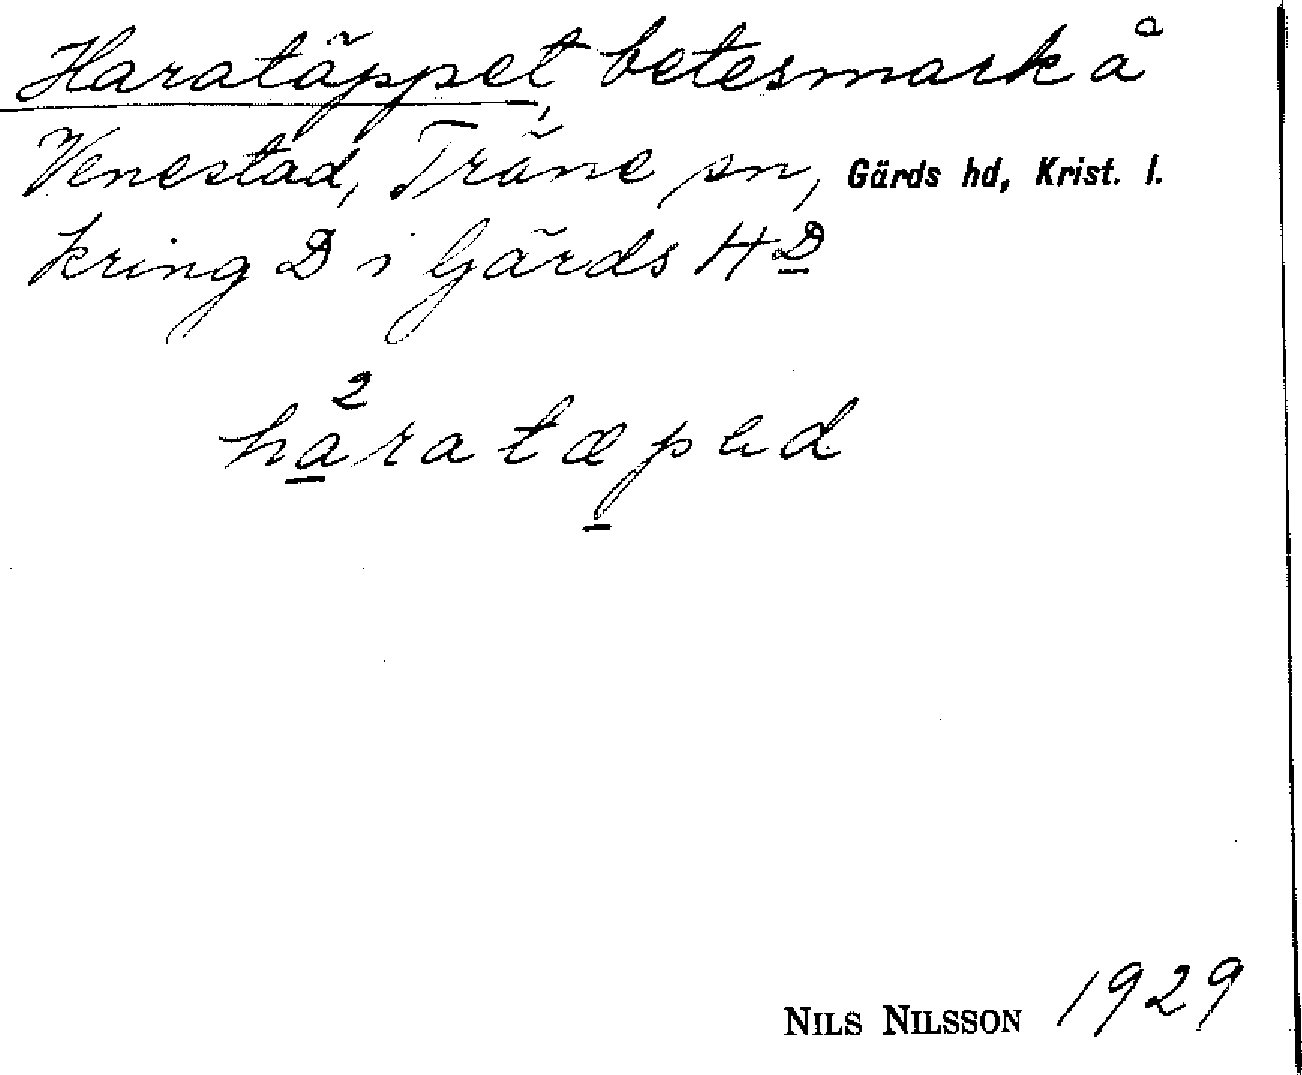 Haratäppet, betesmark å
Venestad, Träne sn, Gärds hd, Krist. l.
kring D i Gärds HD
2
haratæpad
NILS NILSSON 1929